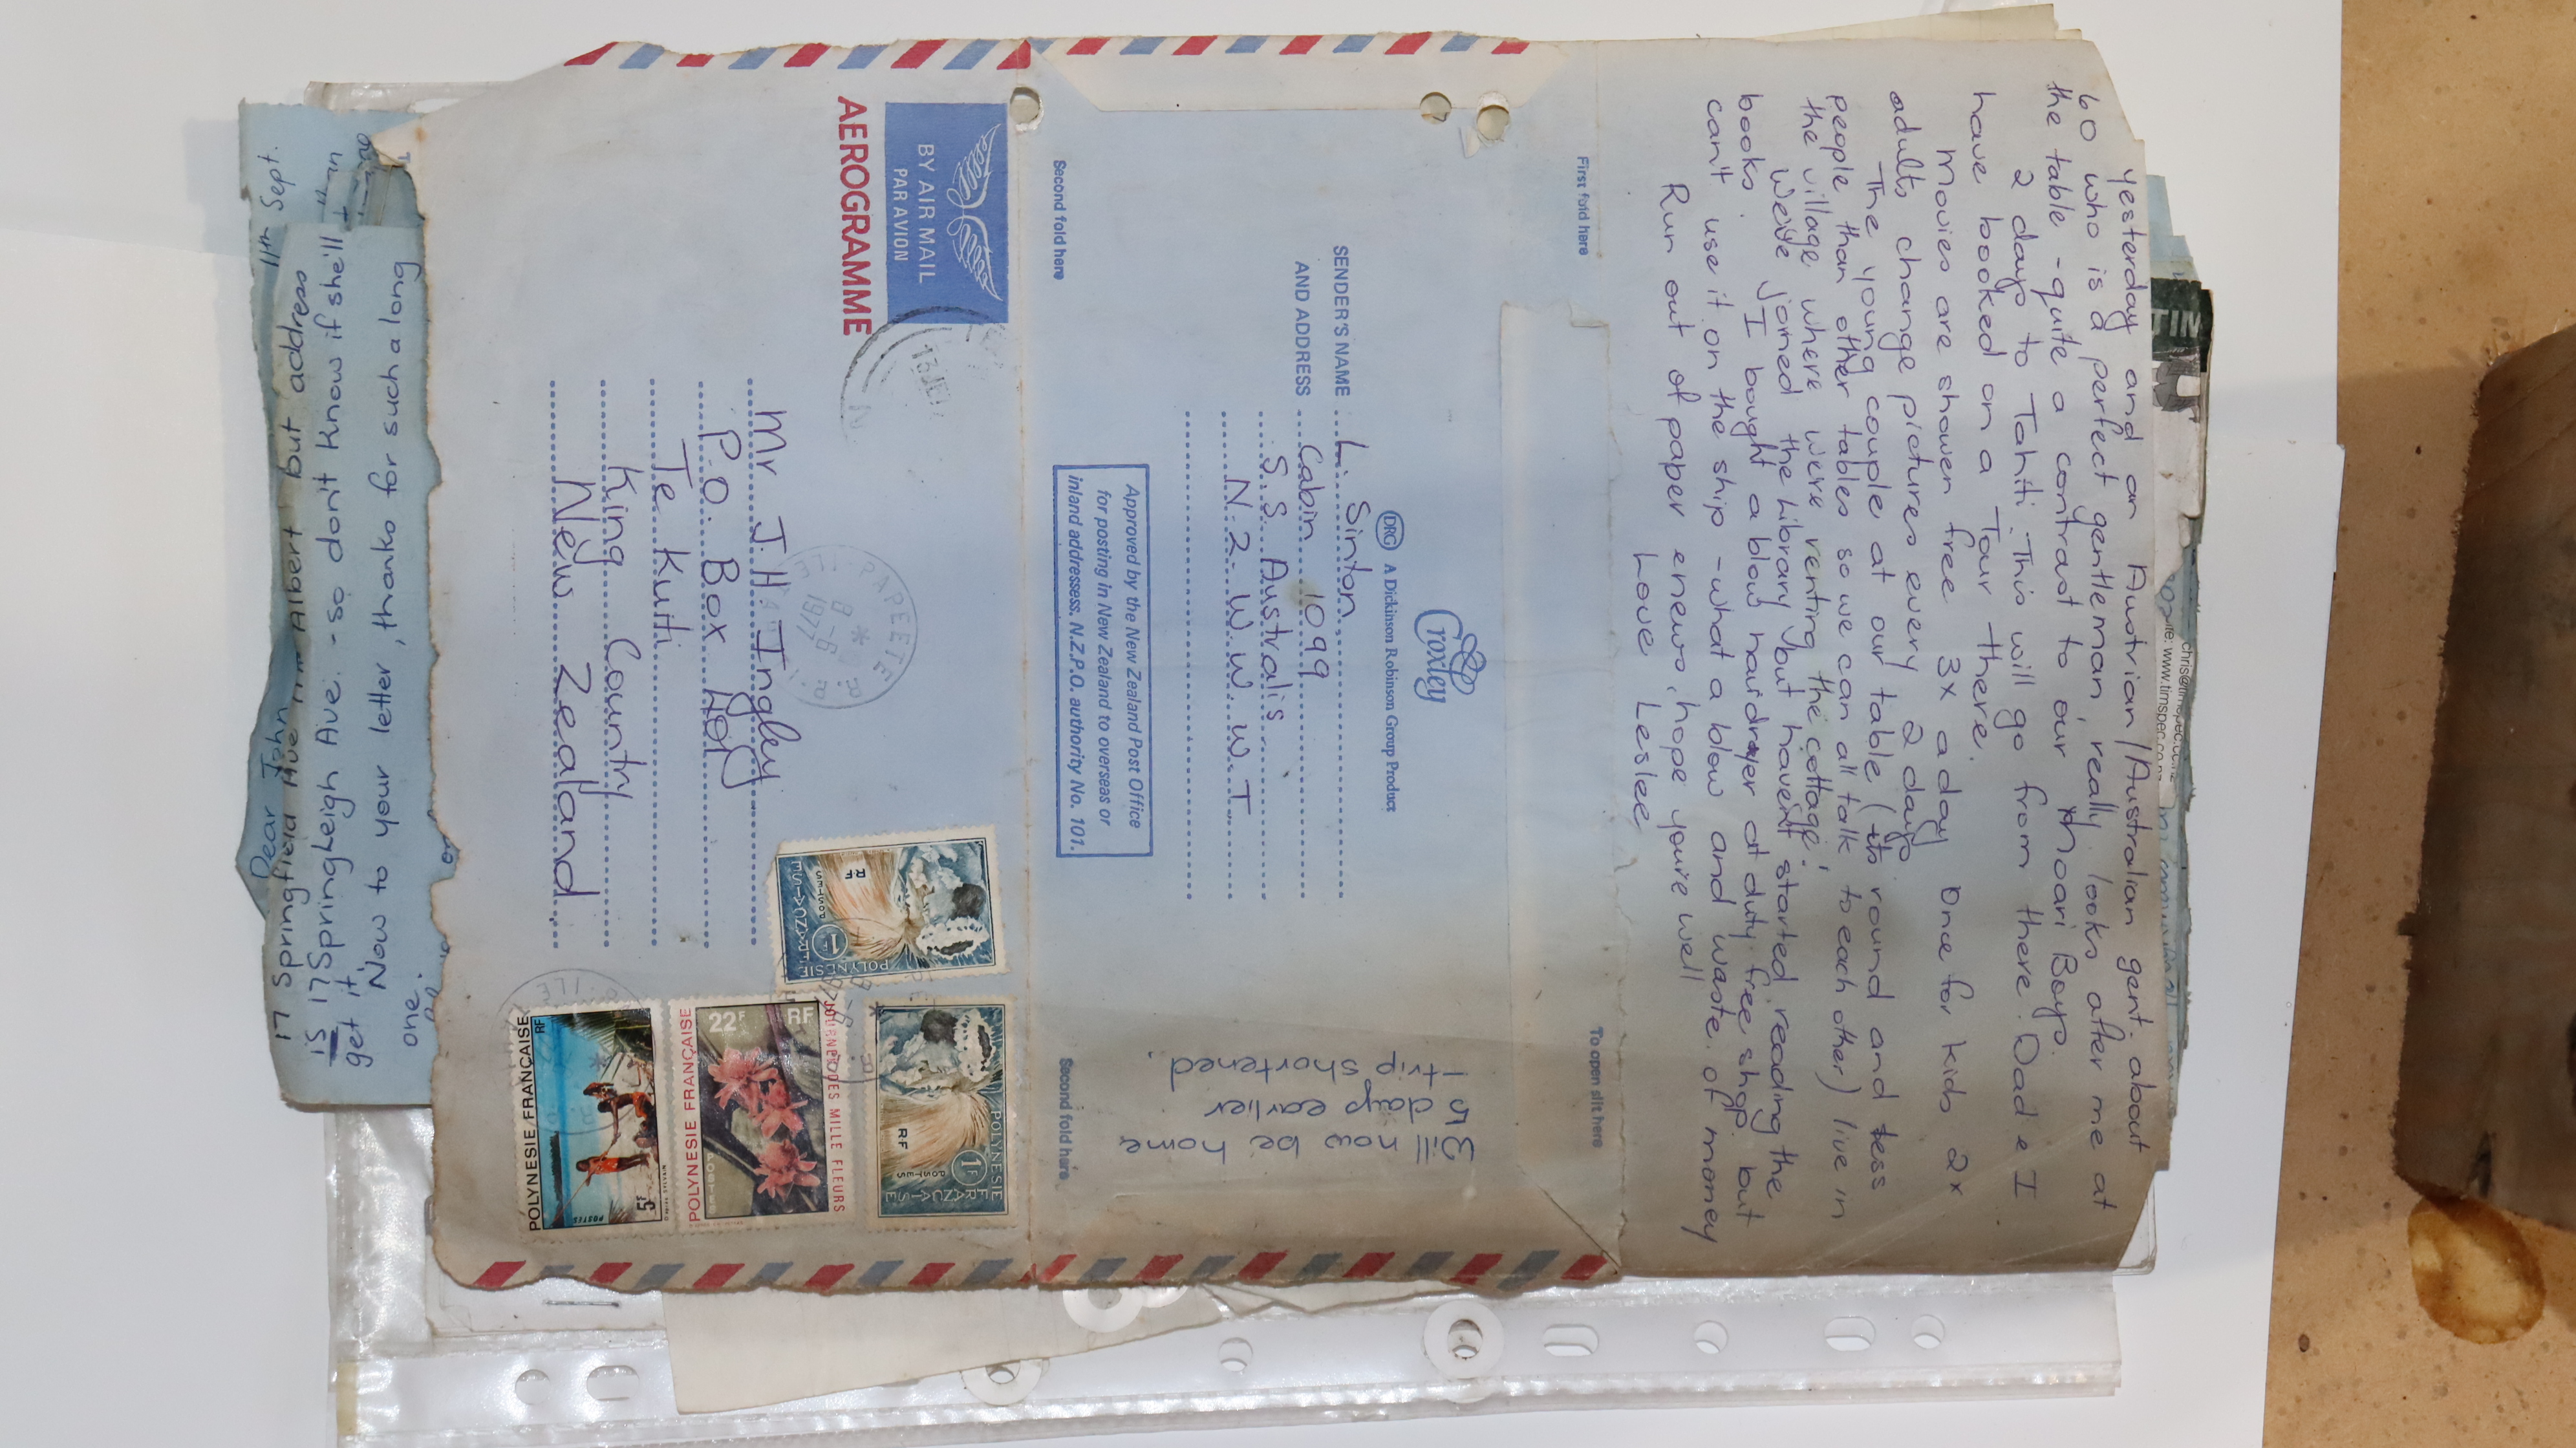 yesterday and an Austrian/Australian gent. about
60 who is a perfect gentleman, really looks after me at
the table - quite a contrast to our Maori Boys.
2 days to Tahiti. This will go from there. Dad & I
have booked on a Tour there.
Movies are shown free 3x a day once for kids 2x
adults change pictures every 2 days
The young couple at our table (its round and less
people than other tables so we can all talk to each other) live in
the village where were renting the cottage!
We've joined the Library but havent started reading the
books. I bought a blow hairdryer at duty free shop but
can't use it on the ship - what a blow and waste of money
Run out of paper & news, hope you're well
Love Leslee
First fold here
To open slit here
Will now be home
5 days earlier
- trip shortened.
Croxley
DRG A Dickinson Robinson Group Product
SENDER'S NAME L. Sinton
AND ADDRESS Cabin 1099
S.S Australis
N.2.W.W.W.T
Approved by the New Zealand Post Office
for posting in New Zealand to overseas or
inland addresses. N.Z.P.O. authority No. 101.
Second fold here
Second fold here
BY AIR MAIL
PAR AVION
AEROGRAMME
PAPEETE
8-6
1977
Mr J.H. Ingley
P.O. Box
Te Kuiti
King Country
New Zealand
POLYNESIE
FRANÇAISE
POSTES
1F
RF
POLYNESIE
FRANÇAISE
POSTES
1F
RF
JOURNEE DES MILLE FLEURS
22F RF
POLYNESIE FRANÇAISE
POLYNESIE FRANÇAISE
RF
5F
POSTES
11th Sept.
Dear John
17 Springfield Ave Albert but address
is 17 Springleigh Ave. - so don't know if she'll
get it.
Now to your letter, thanks for such a long
one.
TIM
www.timspec.co.nz